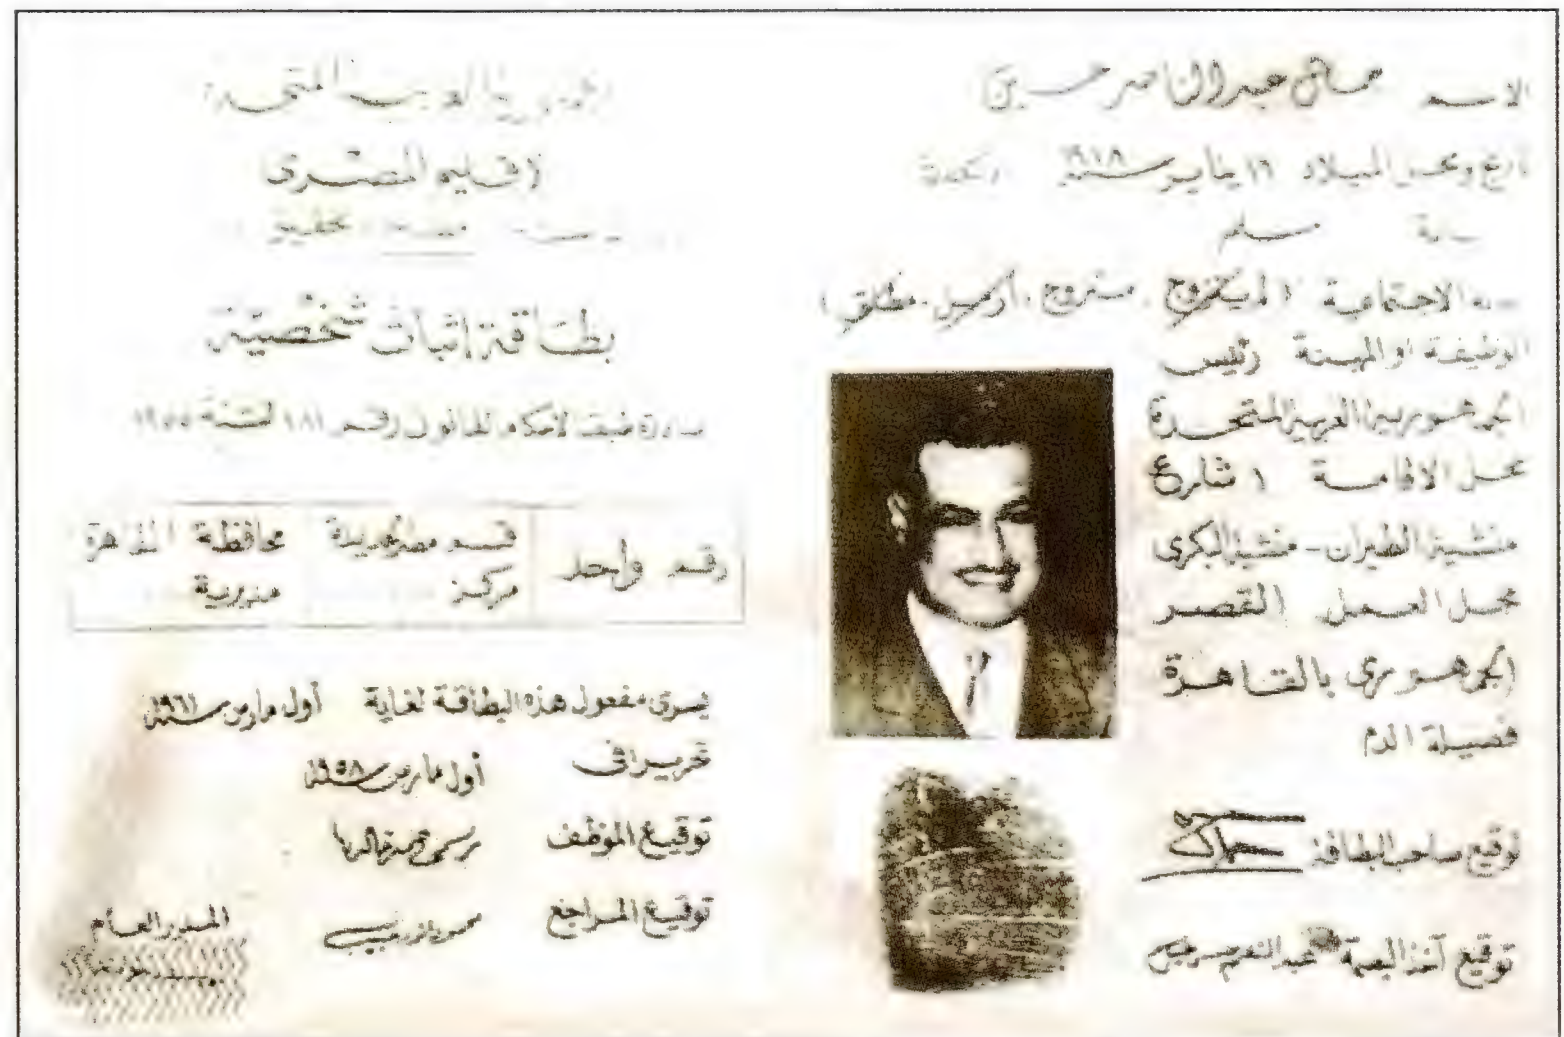 الاسم جمال عبد الناصر حسين
تاريخ ومحل الميلاد ١٦ يناير سنة ١٩١٨
مسلم
الاجتماعية ( متزوج . أرمل . مطلق )
الوظيفة او المهنة رئيس
الجمهورية العربية المتحدة
محل الاقامة ١ شارع
منشية الطيران - منشية البكرى
محل العمل القصر
الجمهورى بالقاهرة
فصيلة الدم
توقيع صاحب البطاقة
توقيع آخذ البصمة عبد المنعم
الجمهورية العربية المتحدة
الاقليم المصرى
تحقيق
بطاقة إثبات شخصية
صادرة طبقا لأحكام القانون رقم ١٨١ لسنة ١٩٥٥
رقم واحد قسم مصر الجديدة محافظة القاهرة
مركز مديرية
يسرى مفعول هذه البطاقة لغاية أول مارس سنة ١٩٦١
تحريرا فى أول مارس سنة ١٩٥٨
توقيع الموظف
توقيع المراجع
المدير العام